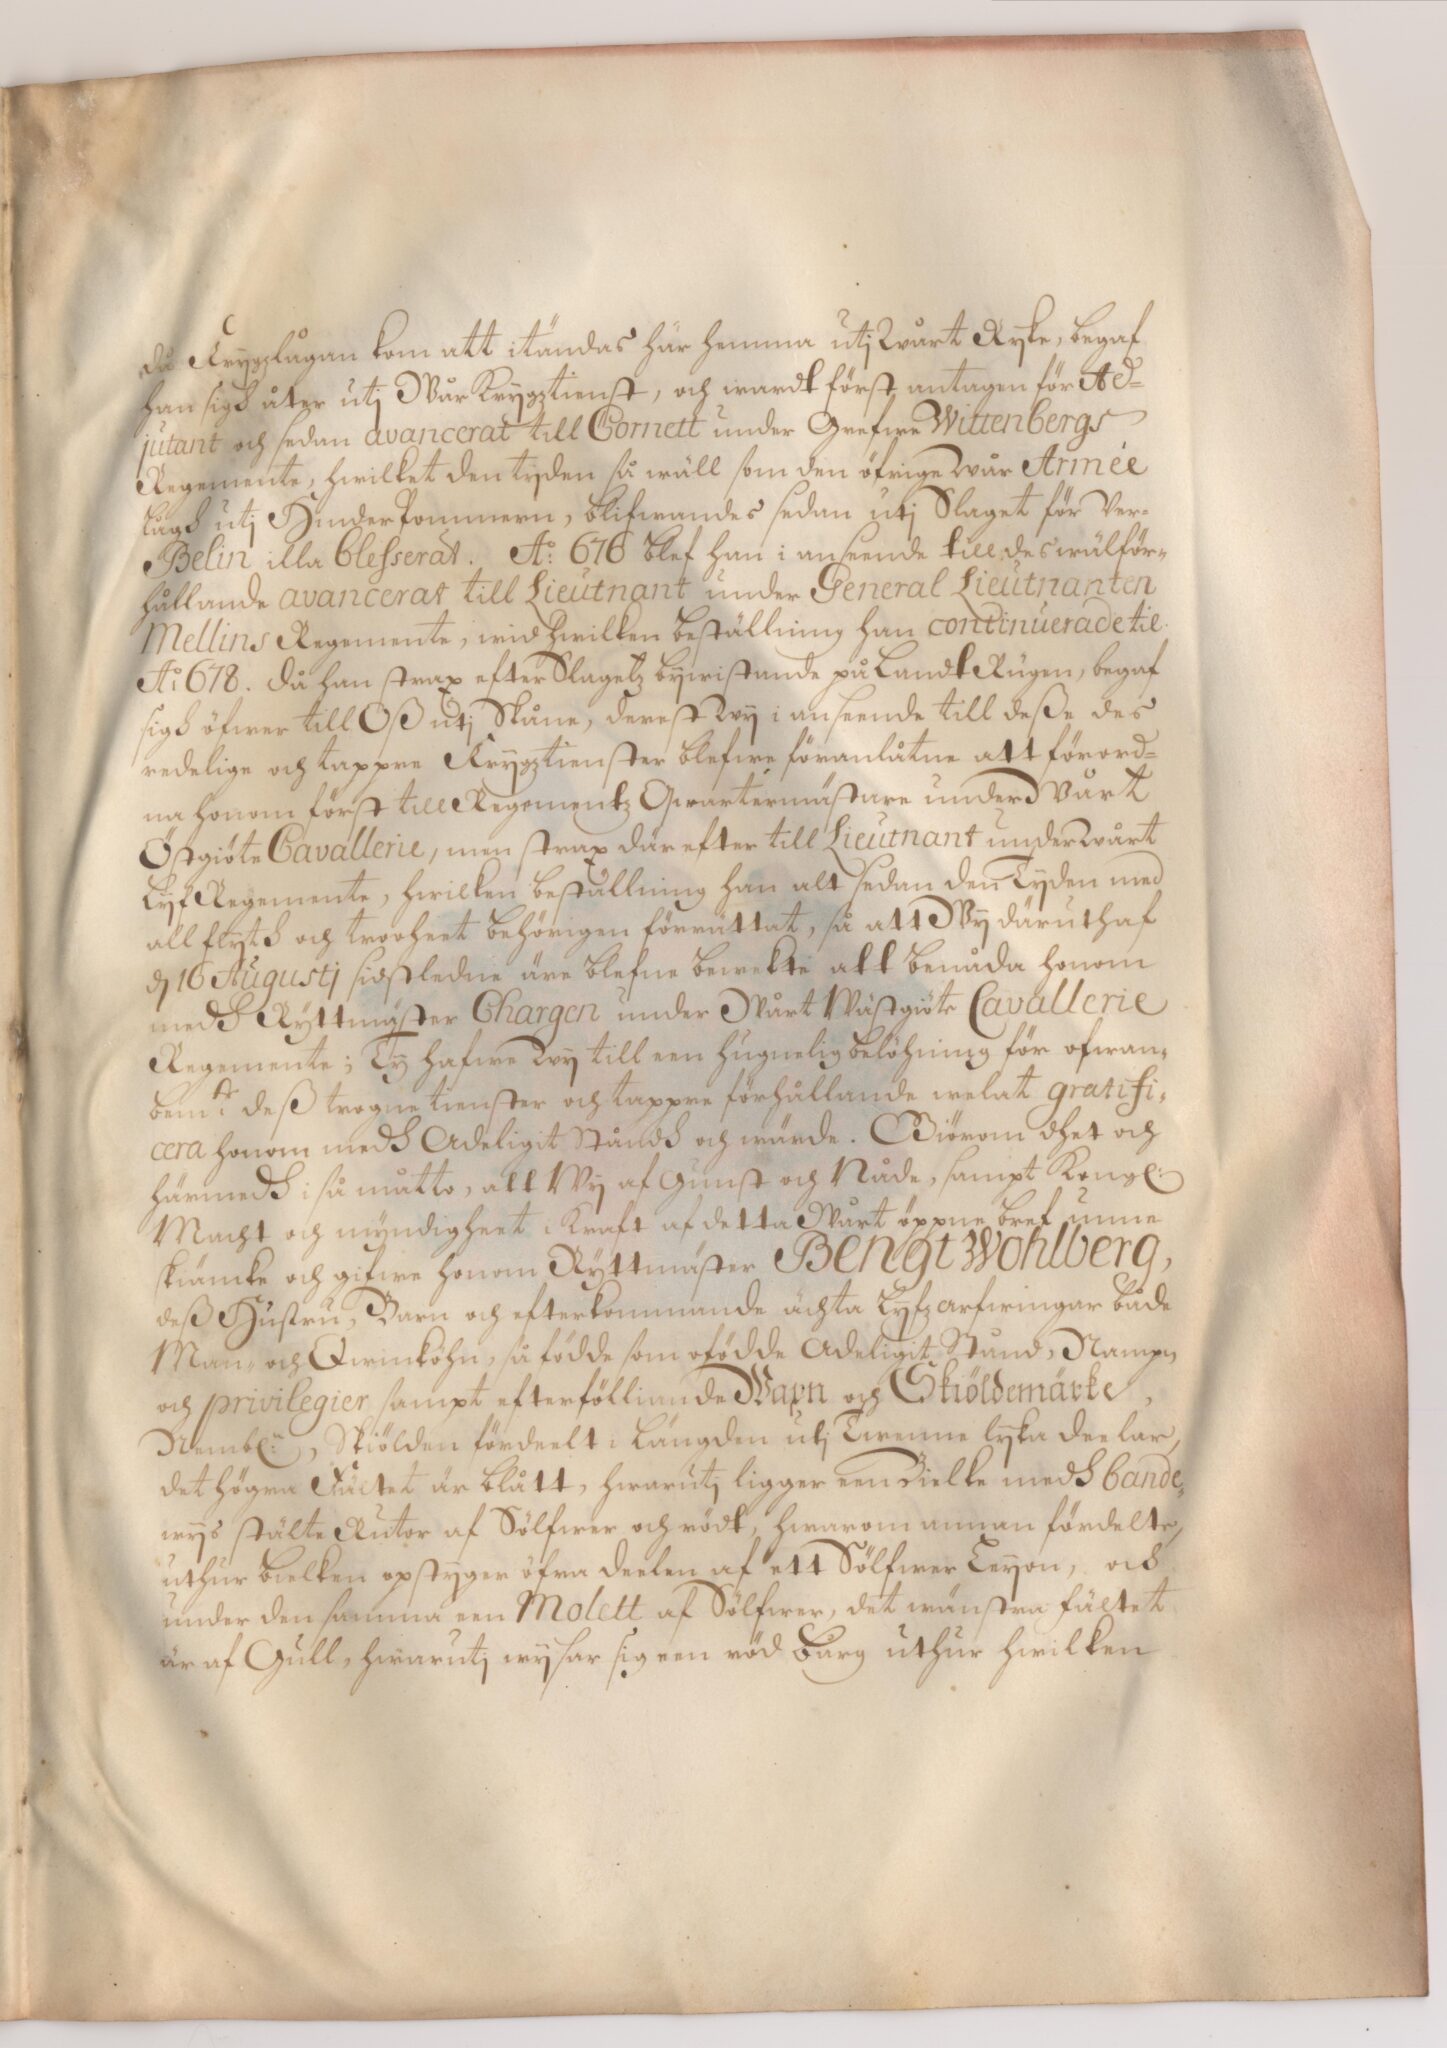 då Krygzlågan kom att itändas här hemma utj Wårt Ryke, begaf
han sigh åter utj Wår Krygztienst, och wardt först antagen för Ad=
jutant och sedan avancerat till Cornett under Grefwe Wittenbergs
Regemente, hwilket den tyden så wäll som den öfrige wår Armée
lågh utj Hinder Pommern, blifwandes sedan utj Slaget för Ver-
Belin illa blesserat. A:o 676 blef han i anseende till des wälför=
hållande avancerat till Lieutnant under General Lieutnanten
Mellins Regemente, wid hwilken beställning han continuerade til
A:o 678. då han strax efter Slagetz bywistande på Landt Rügen, begaf
sigh öfwer till Oß utj Skåne, derest Wy i anseende till deße des
redelige och tappre Krygztienster blefwe föranlåtne att förord=
na honom först till Regementz Qwartermästare under Wårt
Östgiöte Cavallerie, men strax där efter till Lieutnant under Wårt
Lyf Regemente, hwilken beställning han alt sedan den Tyden med
all flyth och trooheet behörigen förrättat, så att Wy däruthaf
d. 16 Augustj sidstledne äre blefne bewekte att benåda honom
medh Ryttmäster Chargen under Wårt Wästgiöte Cavallerie
Regemente; Ty hafwe Wy till een hugnelig belöhning för ofwan-
bem:te deß trogne tienster och tappre förhållande welat gratifi-
cera honom medh Adeligit Ståndh och wärde. Giörom dhet och
härmedh i så matto, att Wy af Gunst och Nåde, sampt Kongl:
Macht och myndigheet i Kraft af detta Wårt öppne bref unne
skiäncke och gifwe honom Ryttmäster Bengt Wohlberg,
deß Hustru, Barn och efterkommande ächta Lyfz arfwingar både
Man- och Qwinköhn, så födde som ofödde Adeligit Stånd, Nampn
och privilegier sampt efterfölliande Wapn och Skiöldemärke,
Nembl:n, Skiölden fördeelt i Längden utj Twenne lyka deelar,
det högra Fältet är blått, hwarutj ligger een Bielke medh bande-
wys stälte Rutor af Sölfwer och rödt, hwarom annan fördelte,
uthur bielken opstyger öfra deelen af ett Sölfwer Leyon, och
under den samma een Molett af Sölfwer, det wänstra fältet
är af Gull, hwarutj wysar sig een röd Barg uthur hwilken